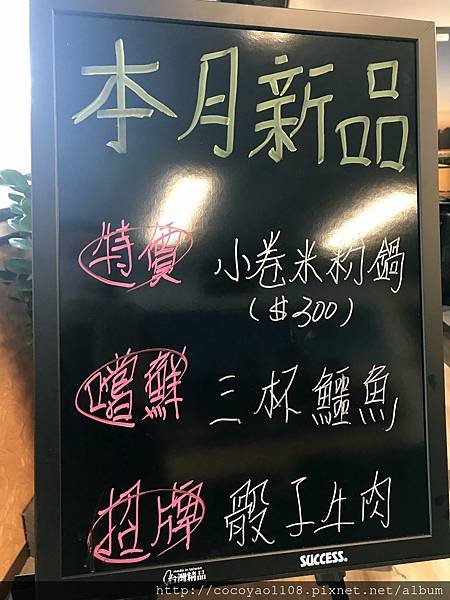 本月新品
特價 小卷米粉鍋
($300)
嚐鮮 三杯鱷魚
招牌 骰子牛肉
made in taiwan
台灣精品
SUCCESS®
http://cocoyao1108.pixnet.net/album